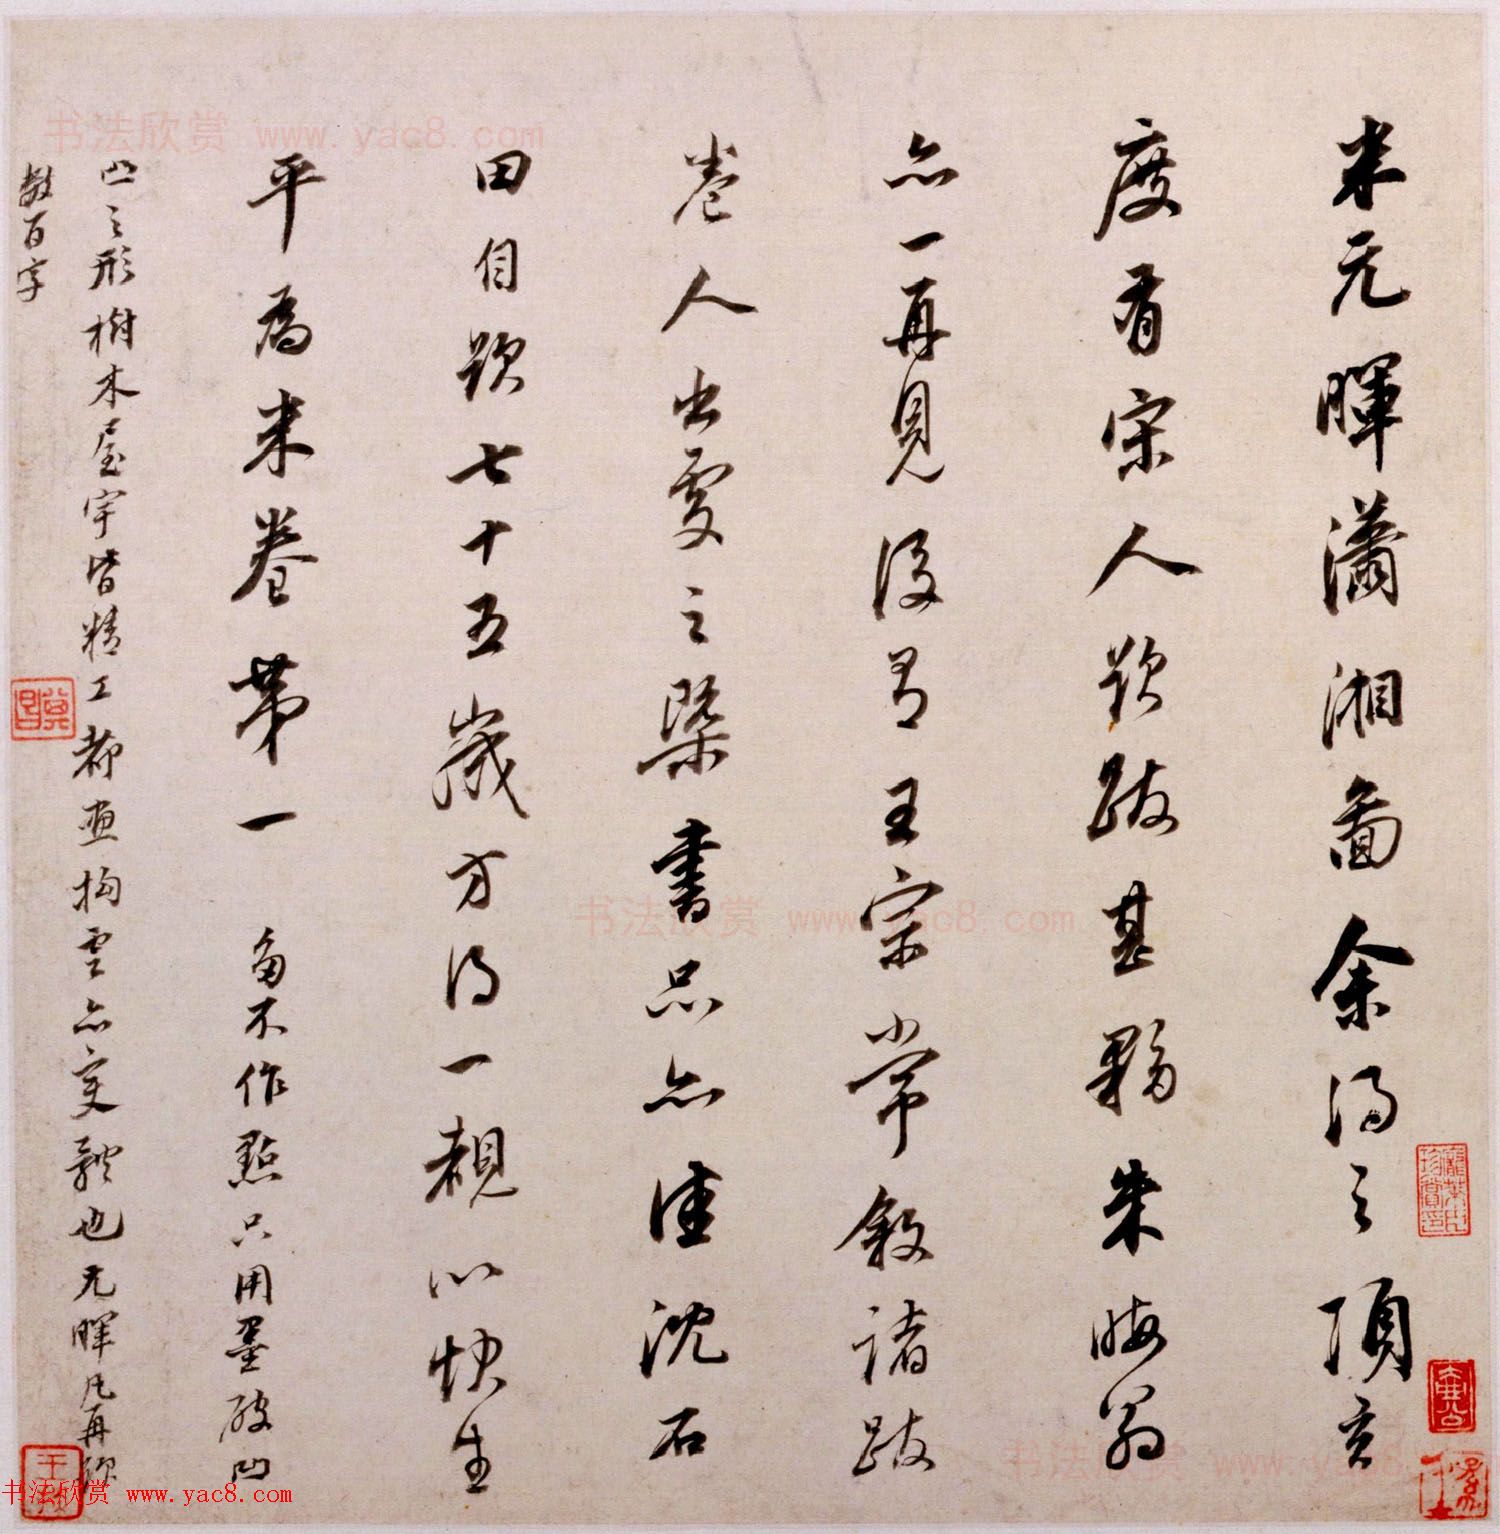 米元暉瀟湘啚余得之項玄
度有宋人題跋甚夥朱晦翁
亦一再見後有王宗常敘諸跋
卷人出處之槩書品亦佳沈石
田自題七十五歲方得一覩以快生
平為米卷第一
多不作點只用墨破凹
凸之形樹木屋宇皆精工都畫拘雲亦變體也元暉凡再題
數百字
书法欣赏 www.yac8.com
书法欣赏 www.yac8.com
书法欣赏 www.yac8.com
书法欣赏 www.yac8.com